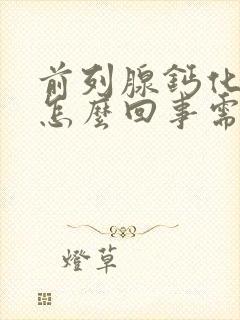 前列腺鈣化
怎麼回事需
燈草